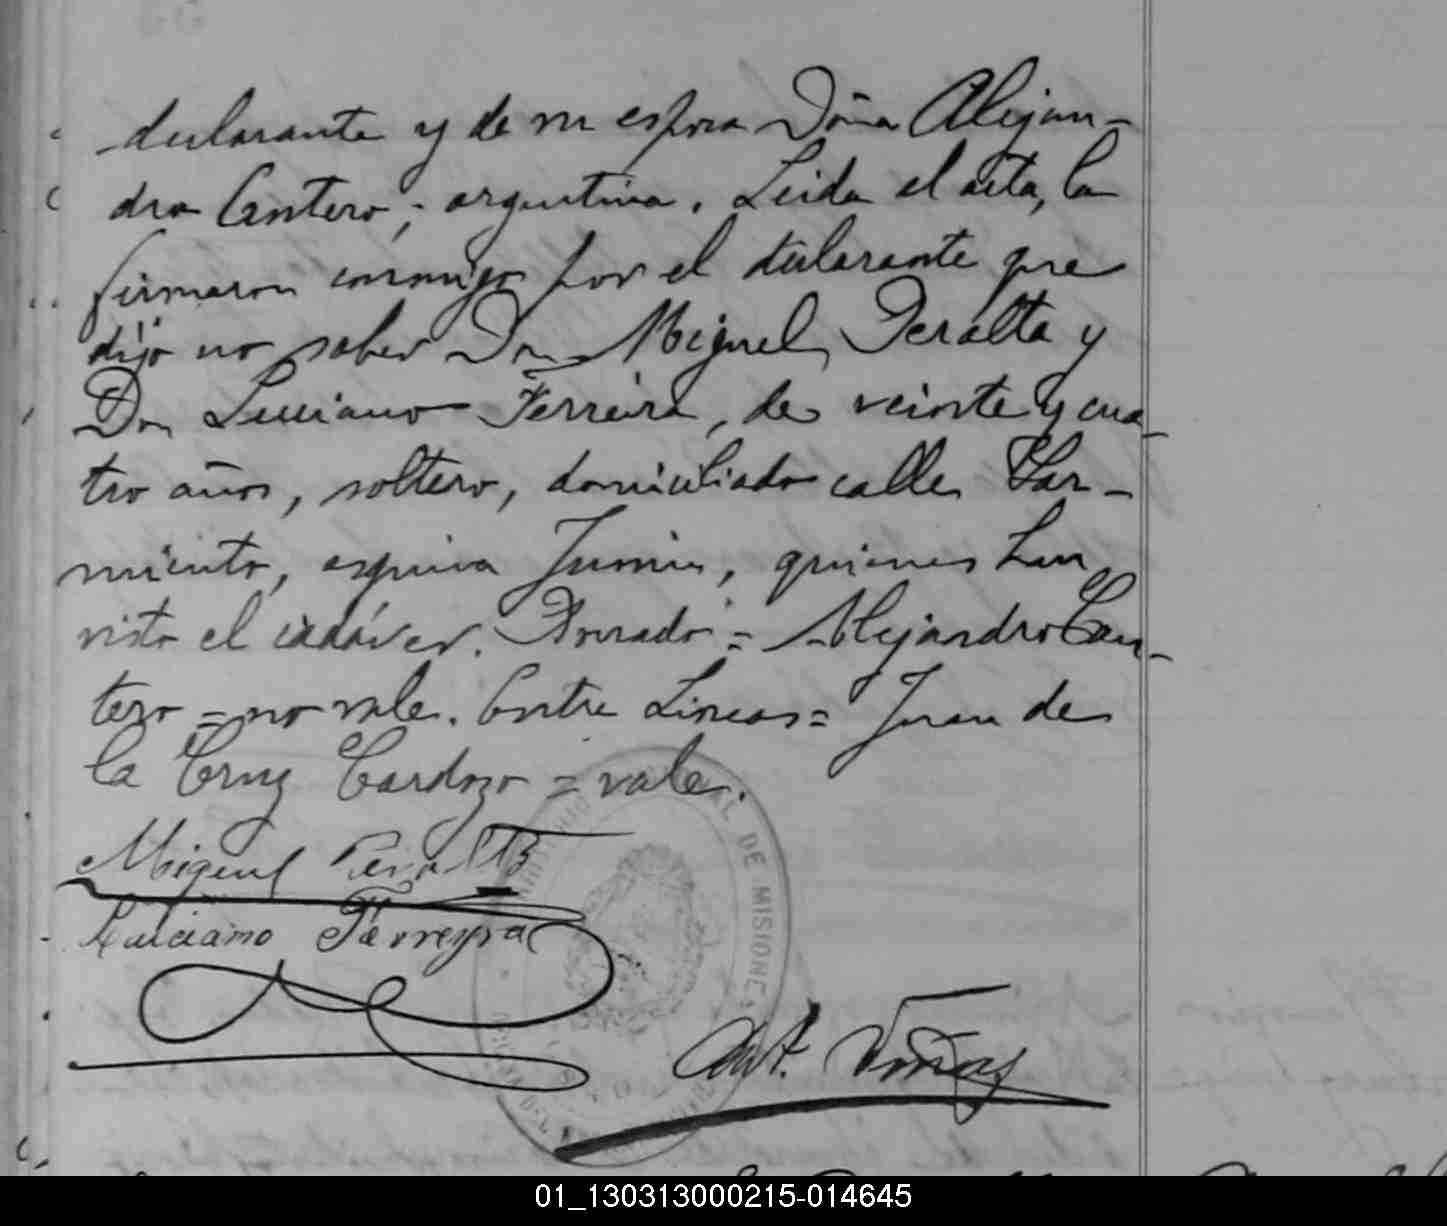 declarante y de su esposa Doña Alejan-
dra Cantero, argentina. Leida el acta, la
firmaron conmigo por el declarante que
dijo no saber Don Miguel Peralta y
Don Luciano Ferreira, de veinte y cua-
tro años, soltero, domiciliado calle Sar-
miento, esquina Junin, quienes han
visto el cadáver. Borrado = Alejandro Can-
tero = no vale. Entre Lineas = Juan de
la Cruz Cardozo = vale.
Miguel Peralta
Luciano Ferreyra
DE MISIONES
Ant.
01_130313000215-014645